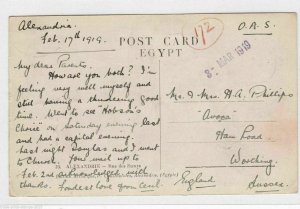 Alexandria
Feb. 17th 1919.
O.A.S.
POST CARD
EGYPT
1/2
MAR 1919
My dear Parents,
How are you both? I'm
feeling very well myself and
still having a thundering good
time. Went to see "Hobson's
Choice" on Saturday evening last
and had a capital evening,
last night Douglas and I went
to Church. Your mail up to
Feb. 2nd acknowledged with
thanks. Fondest love from Cecil.
ALEXANDRIE
Mr. & Mrs. H.A. Phillips
Ham Road
Worthing
Sussex.
England